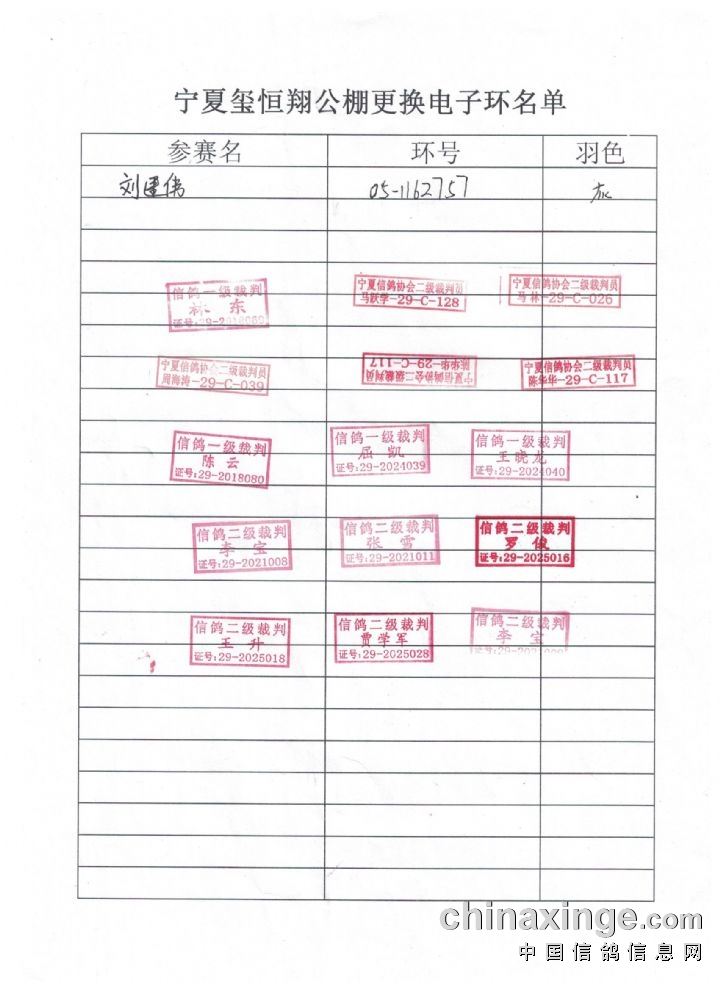 宁夏玺恒翔公棚更换电子环名单
参赛名 环号 羽色
刘建伟 05-1162757 灰
信鸽一级裁判
林 东
证号:29-2018069
宁夏信鸽协会二级裁判员
马跃学-29-C-128
宁夏信鸽协会二级裁判员
马林-29-C-026
宁夏信鸽协会二级裁判员
周海涛-29-C-039
宁夏信鸽协会二级裁判员
陈华华-29-C-117
宁夏信鸽协会二级裁判员
陈华华-29-C-117
信鸽一级裁判
陈云
证号:29-2018080
信鸽一级裁判
屈凯
证号:29-2024039
信鸽一级裁判
王晓龙
证号:29-2024040
信鸽二级裁判
李宝
证号:29-2021008
信鸽二级裁判
张雪
证号:29-2021011
信鸽二级裁判
罗俊
证号:29-2025016
信鸽二级裁判
王升
证号:29-2025018
信鸽二级裁判
贾学军
证号:29-2025028
信鸽二级裁判
李宝
chinaxinge.com
中国信鸽信息网